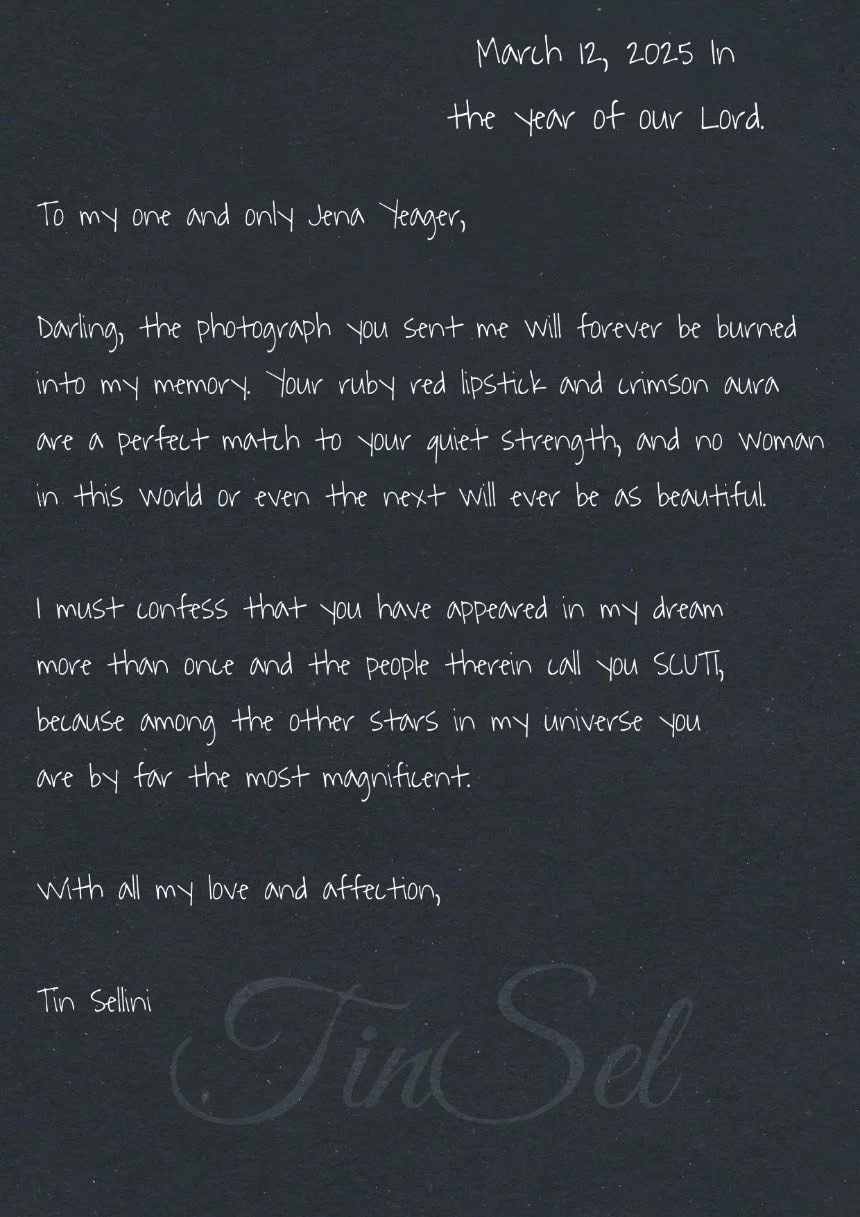 March 12, 2025 In
the year of our Lord.
To my one and only Jena Yeager,
Darling, the photograph you sent me will forever be burned
into my memory. Your ruby red lipstick and crimson aura
are a perfect match to your quiet strength, and no woman
in this world or even the next will ever be as beautiful.
I must confess that you have appeared in my dream
more than once and the people therein call you SCUTI,
because among the other stars in my universe you
are by far the most magnificent.
With all my love and affection,
Tin Sellini
TinSel